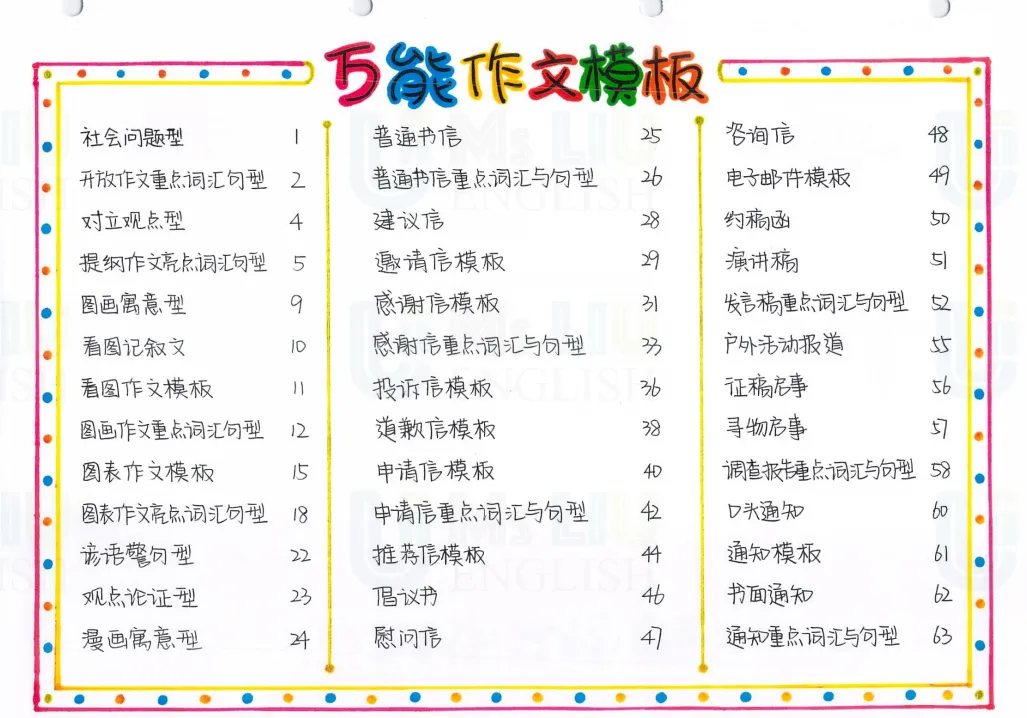 万能作文模板
社会问题型 1
开放作文重点词汇句型 2
对立观点型 4
提纲作文亮点词汇句型 5
图画寓意型 9
看图记叙文 10
看图作文模板 11
图画作文重点词汇句型 12
图表作文模板 15
图表作文亮点词汇句型 18
谚语警句型 22
观点论证型 23
漫画寓意型 24
普通书信 25
普通书信重点词汇与句型 26
建议信 28
邀请信模板 29
感谢信模板 31
感谢信重点词汇与句型 33
投诉信模板 36
道歉信模板 38
申请信模板 40
申请信重点词汇与句型 42
推荐信模板 44
倡议书 46
慰问信 47
咨询信 48
电子邮件模板 49
约稿函 50
演讲稿 51
发言稿重点词汇与句型 52
户外活动报道 55
征稿启事 56
寻物启事 57
调查报告重点词汇与句型 58
口头通知 60
通知模板 61
书面通知 62
通知重点词汇与句型 63
Ms LIU
ENGLISH